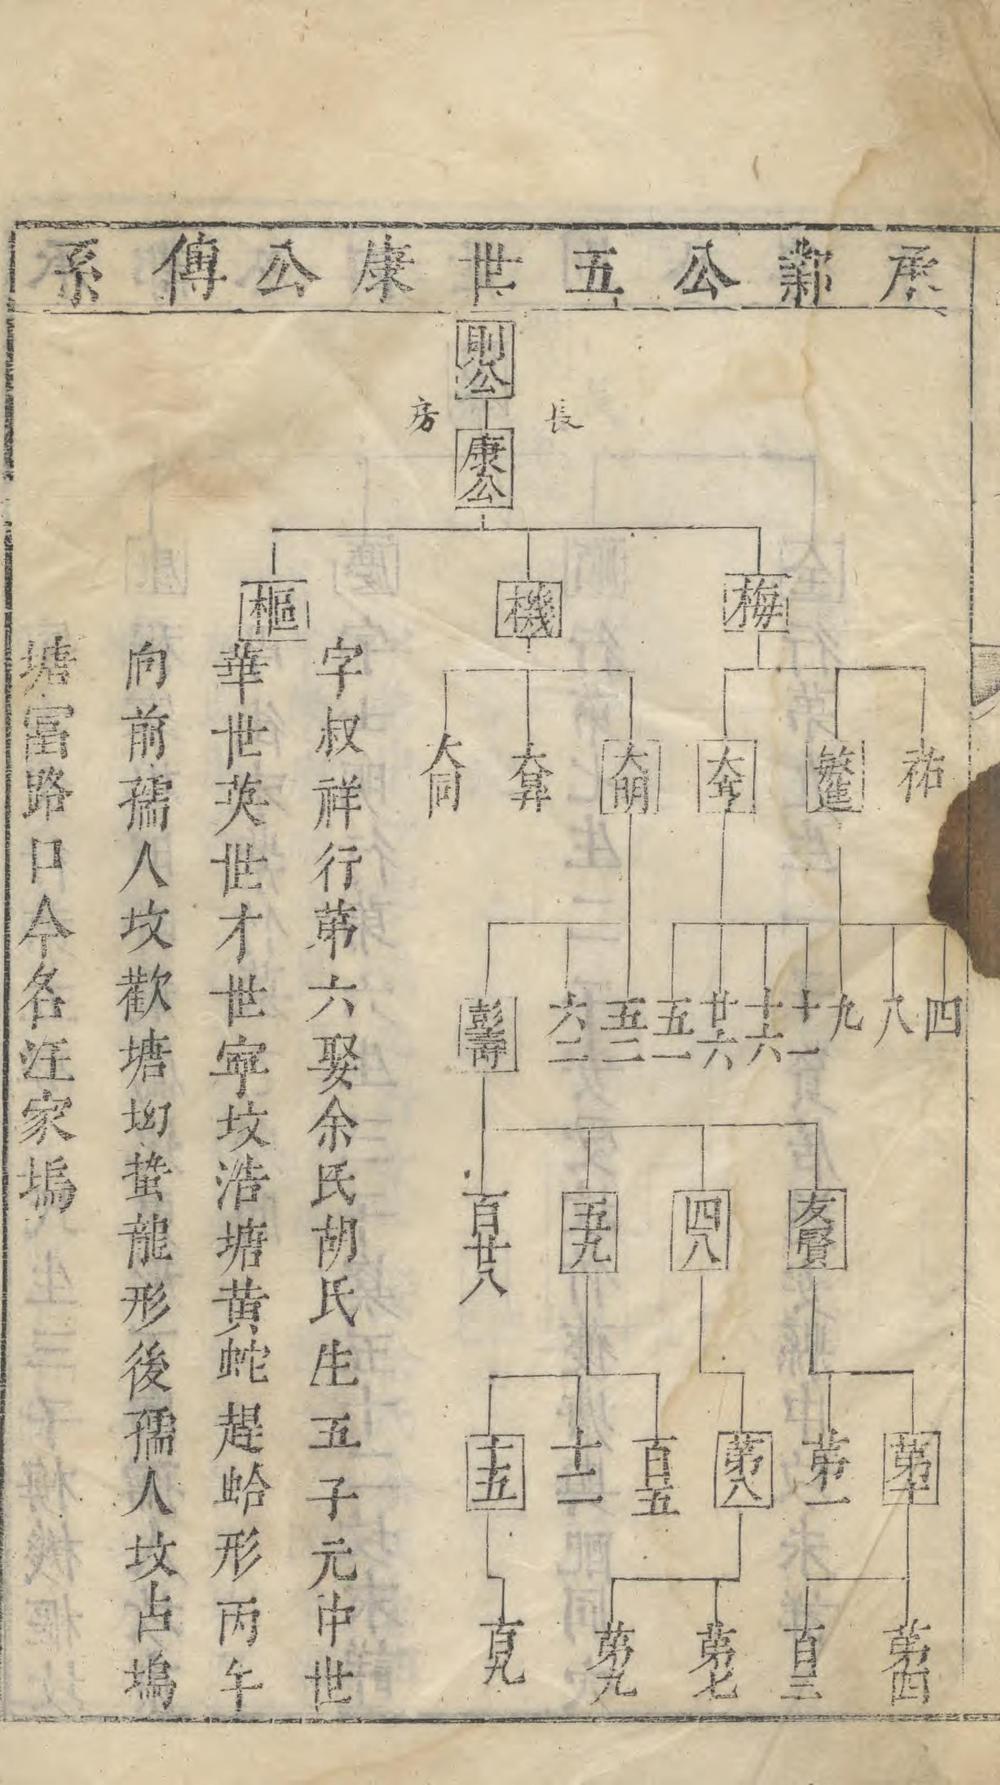 承鄴公五世康公傳系
則公
長房
康公
梅
機
樞
祐
大明
大昇
大同
四
八
九
十一
十六
廿六
五一
五二
六二
彭壽
友賢
四八
五九
百廿八
第十
第一
第八
百五
十二
十五
第四
百三
第七
第九
百九
字叔祥行第六娶余氏胡氏生五子元中世
華世英世才世寧坟浩塘黄蛇趕蛤形丙午
向前孺人坟歡塘坳蟄龍形後孺人坟占塢
塘富路口今名汪家塢